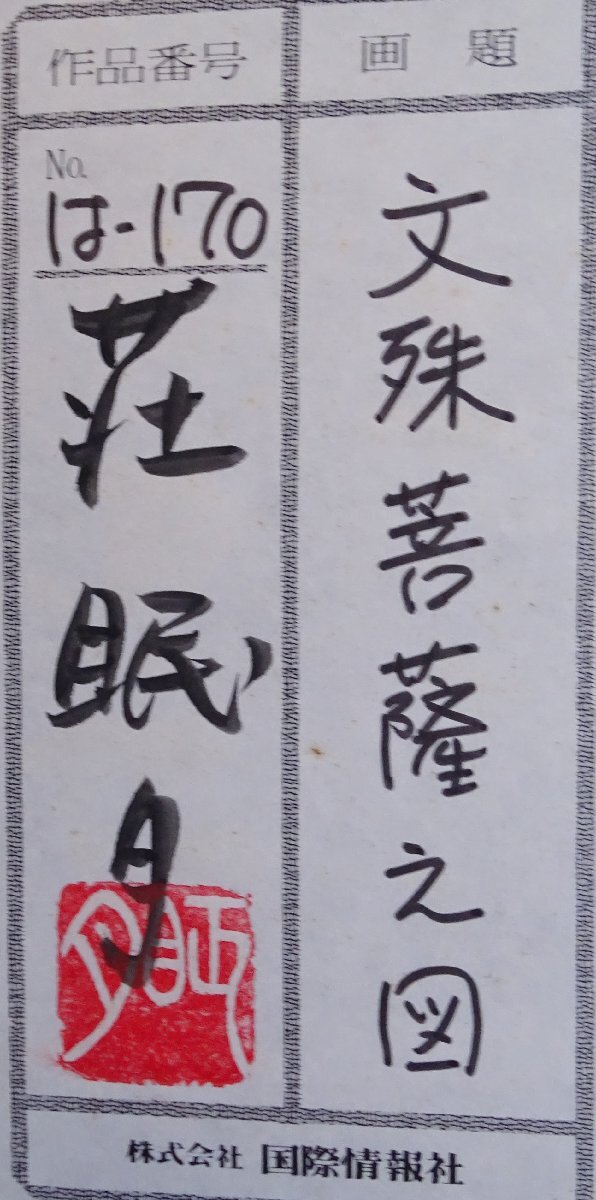 画題
文殊菩薩之図
作品番号
No.
は-170
荘眠夕
株式会社 国際情報社